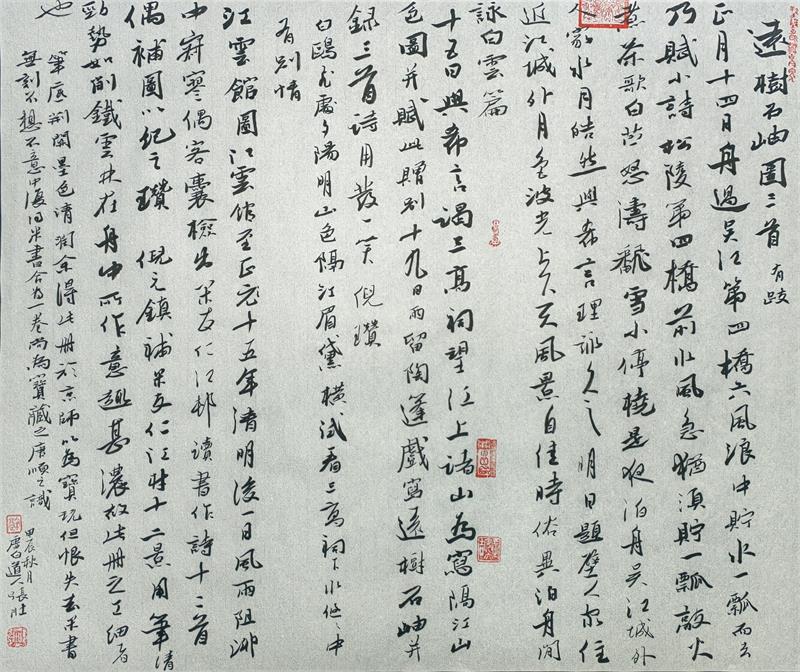 遠樹石岫圖三首 有跋
正月十四日舟過吳江第四橋大風浪中貯水一瓢而去
乃賦小詩 松陵第四橋前水風急猶須貯一瓢敲火
煮茶歌白苧怒濤翻雪小停橈是夜泊舟吳江城外
人家水月皓然與希言理詠久之明日題壁人家住
近江城外月色波光上下天風景自佳時俗異泊舟閒
詠白雲篇
十五日與希言謁三高祠望江上諸山為寫隔江山
色圖并賦此贈別十九日雨留陶蓬戲寫遠樹石岫并
錄三首詩用發一笑 倪瓚
白鷗飛處夕陽明山色隔江眉黛橫試看三高祠下水他中
有別情
江雲館圖江雲館至正十五年清明後一日風雨阻泖
中齋寒偶客囊檢先朱友仁江邨讀書作詩十二首
偶補圖以紀之瓚 倪元鎮補朱友仁江村十二景用筆清
勁勢如削鐵雲林在舟中所作意趣甚濃故此冊之工細者
也
筆底荊關墨色清潤余得此冊於京師以為寶玩但恨失去朱書
無刻不想不意中復得朱書合為一卷尚為寶藏之唐順之識
甲辰秋月
張旺